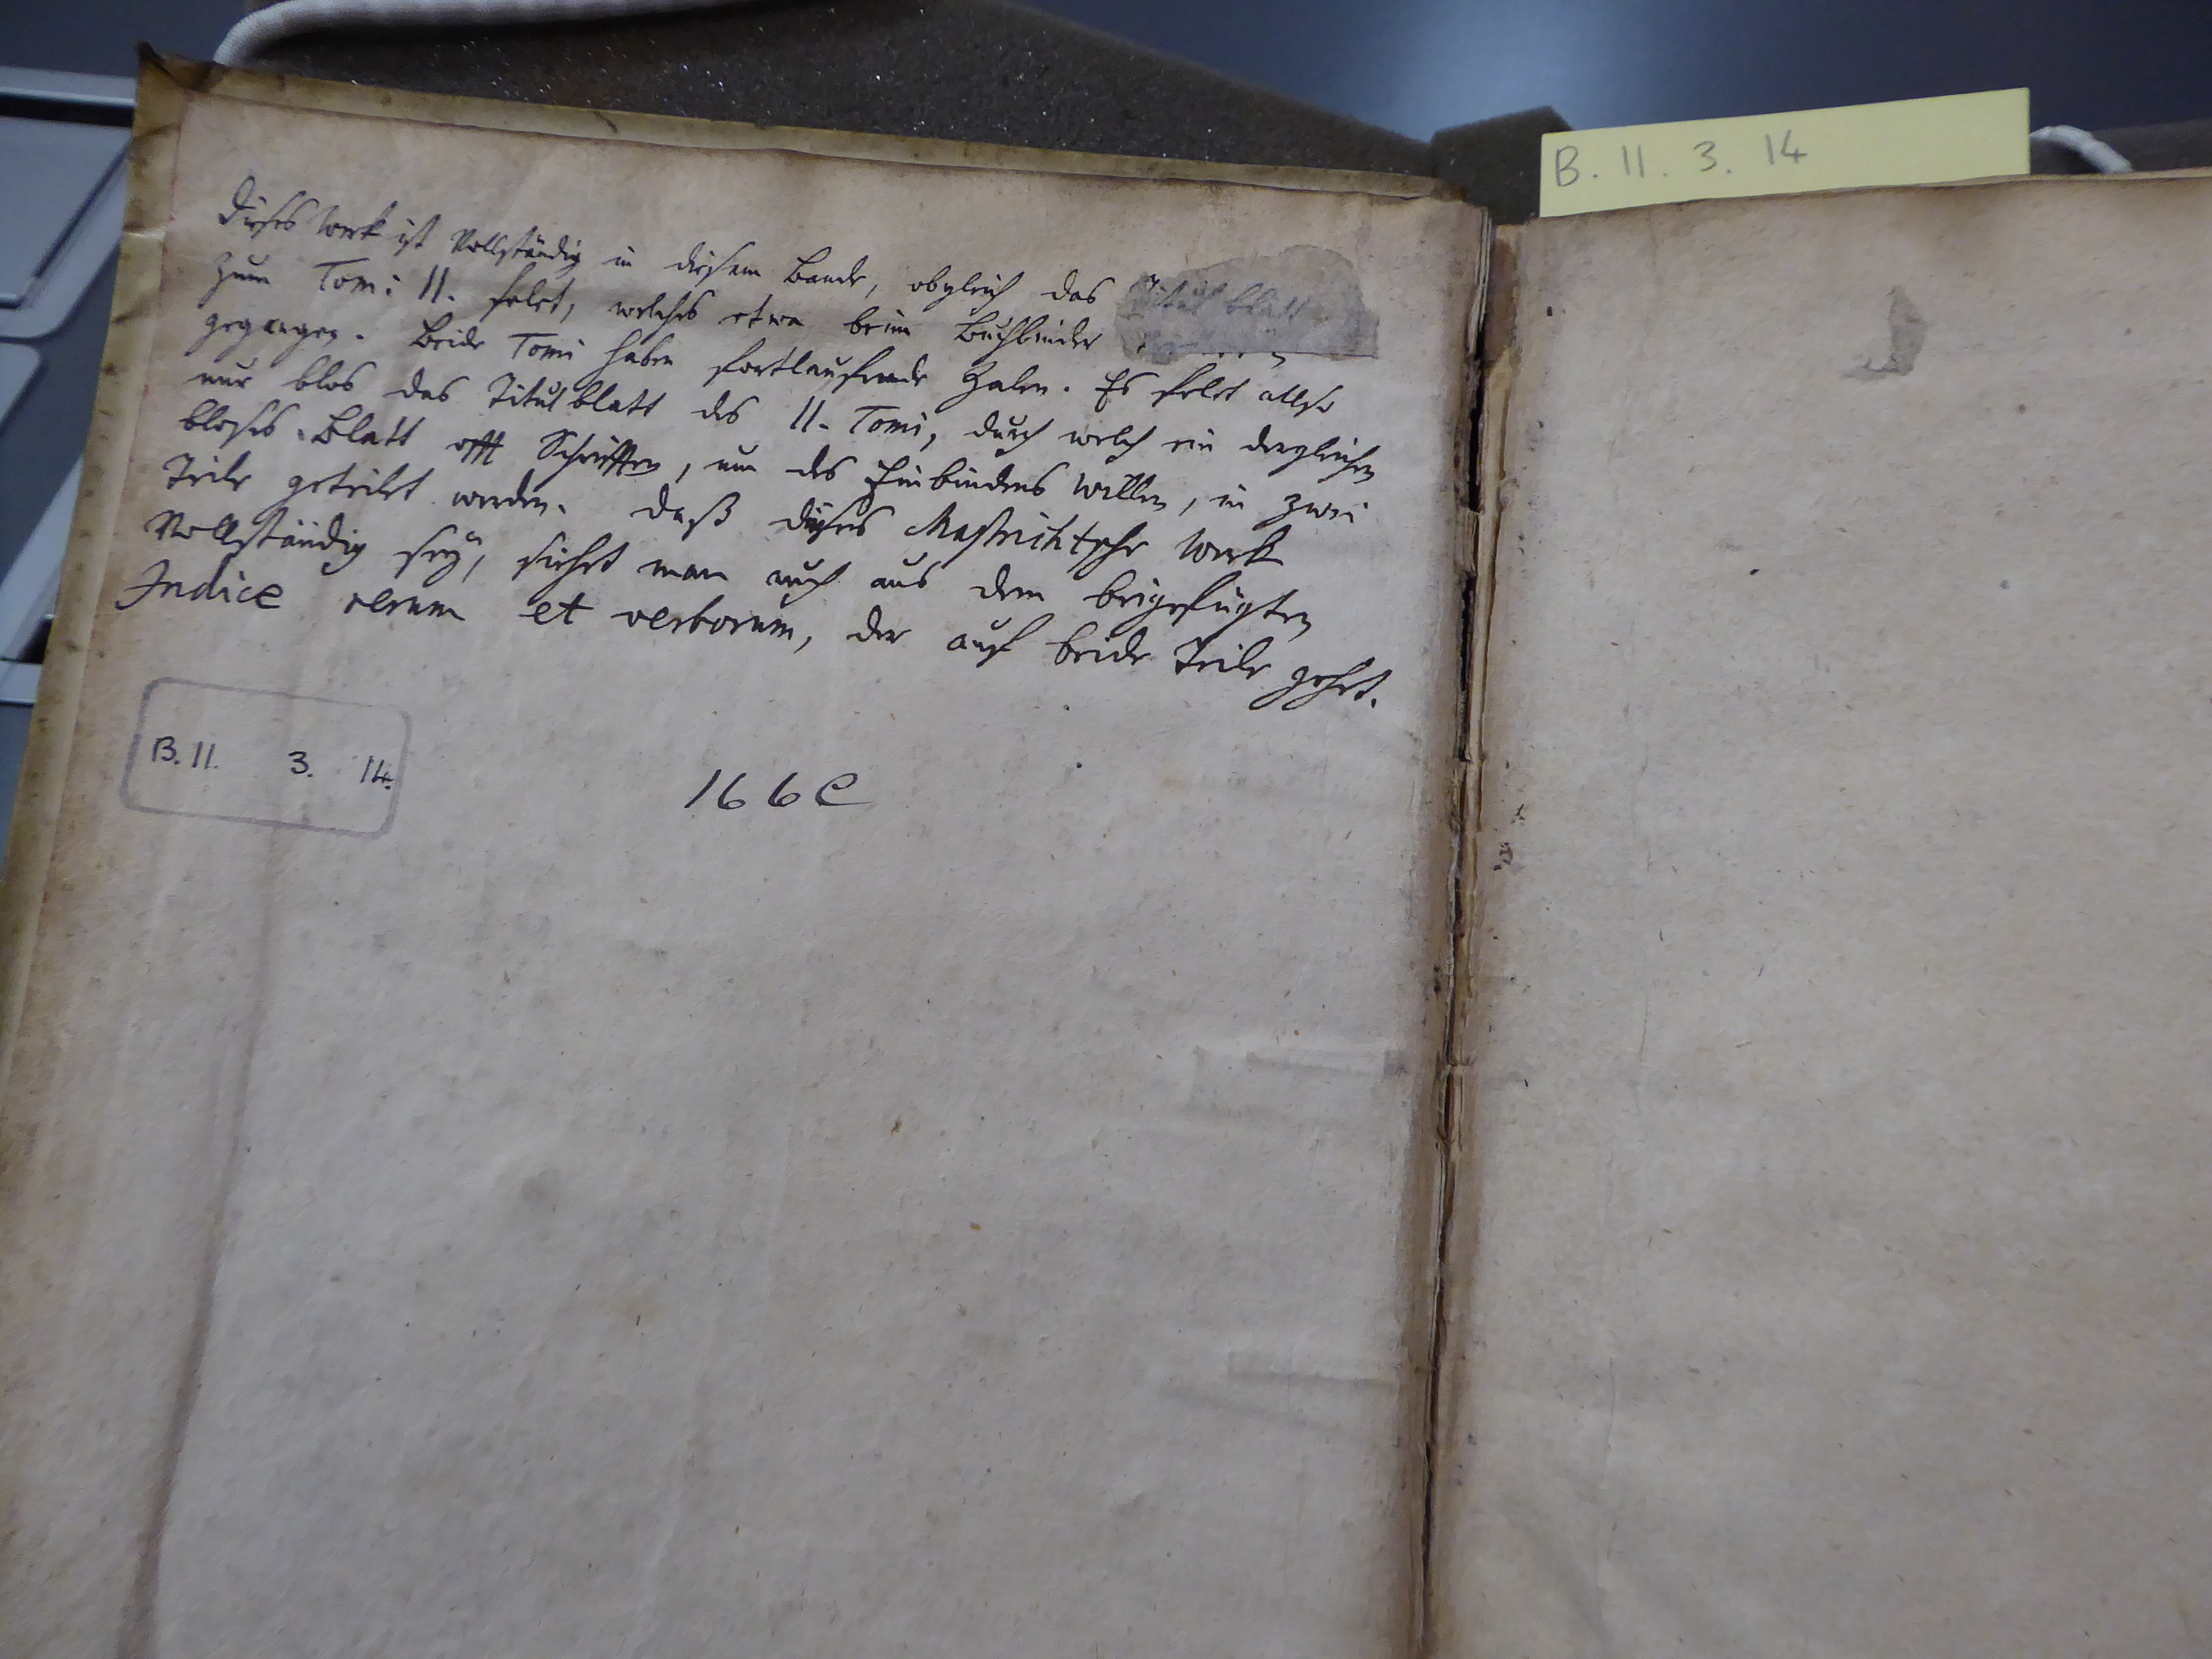 B. II. 3. 14
Dieses Werk ist Vollständig in diesem Bande, obgleich das Titul blatt
zum Tomi II. felet, welches etwa beim Buchbinder
gegangen. Beide Tomi haben fortlaufende Zalen. Es felet allso
nur blos das Titulblatt des II. Tomi, durch welch ein dergleichen
bloses Blatt offt Schrifften, um des Einbindens Willen, in zwei
Teile geteilet werden. Daß dieses Mastrichtsche Werk
Vollständig seÿ, siehet man auch aus dem beigefügten
Indice rerum et verborum, der auf beide Teile gehet.
B. II. 3. 14.
166 C